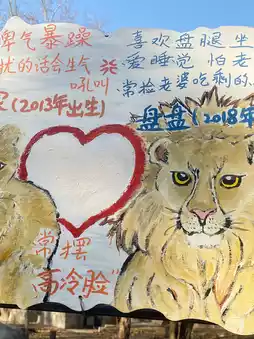 脾气暴躁
扰的话会生气
吼叫
(2013年出生)
喜欢盘腿坐
爱睡觉 怕老
常捡老婆吃剩的
盘盘(2018年
常摆
高冷脸"